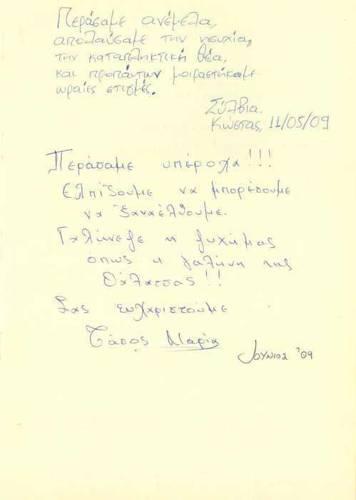 Περάσαμε ανέμελα,
απολαύσαμε την ησυχία,
την καταπληκτική θέα,
και προπάντων μοιραστήκαμε
ωραίες στιγμές.
Σύλβια
Κώστας, 11/05/09
Περάσαμε υπέροχα!!!
Ελπίζουμε να μπορέσουμε
να ξαναέλθουμε.
Γαλήνεψε η ψυχή μας
όπως η γαλήνη της
Θάλασσας!!
Σας ευχαριστούμε
Τάσος Μαρία
Ιούνιος '09